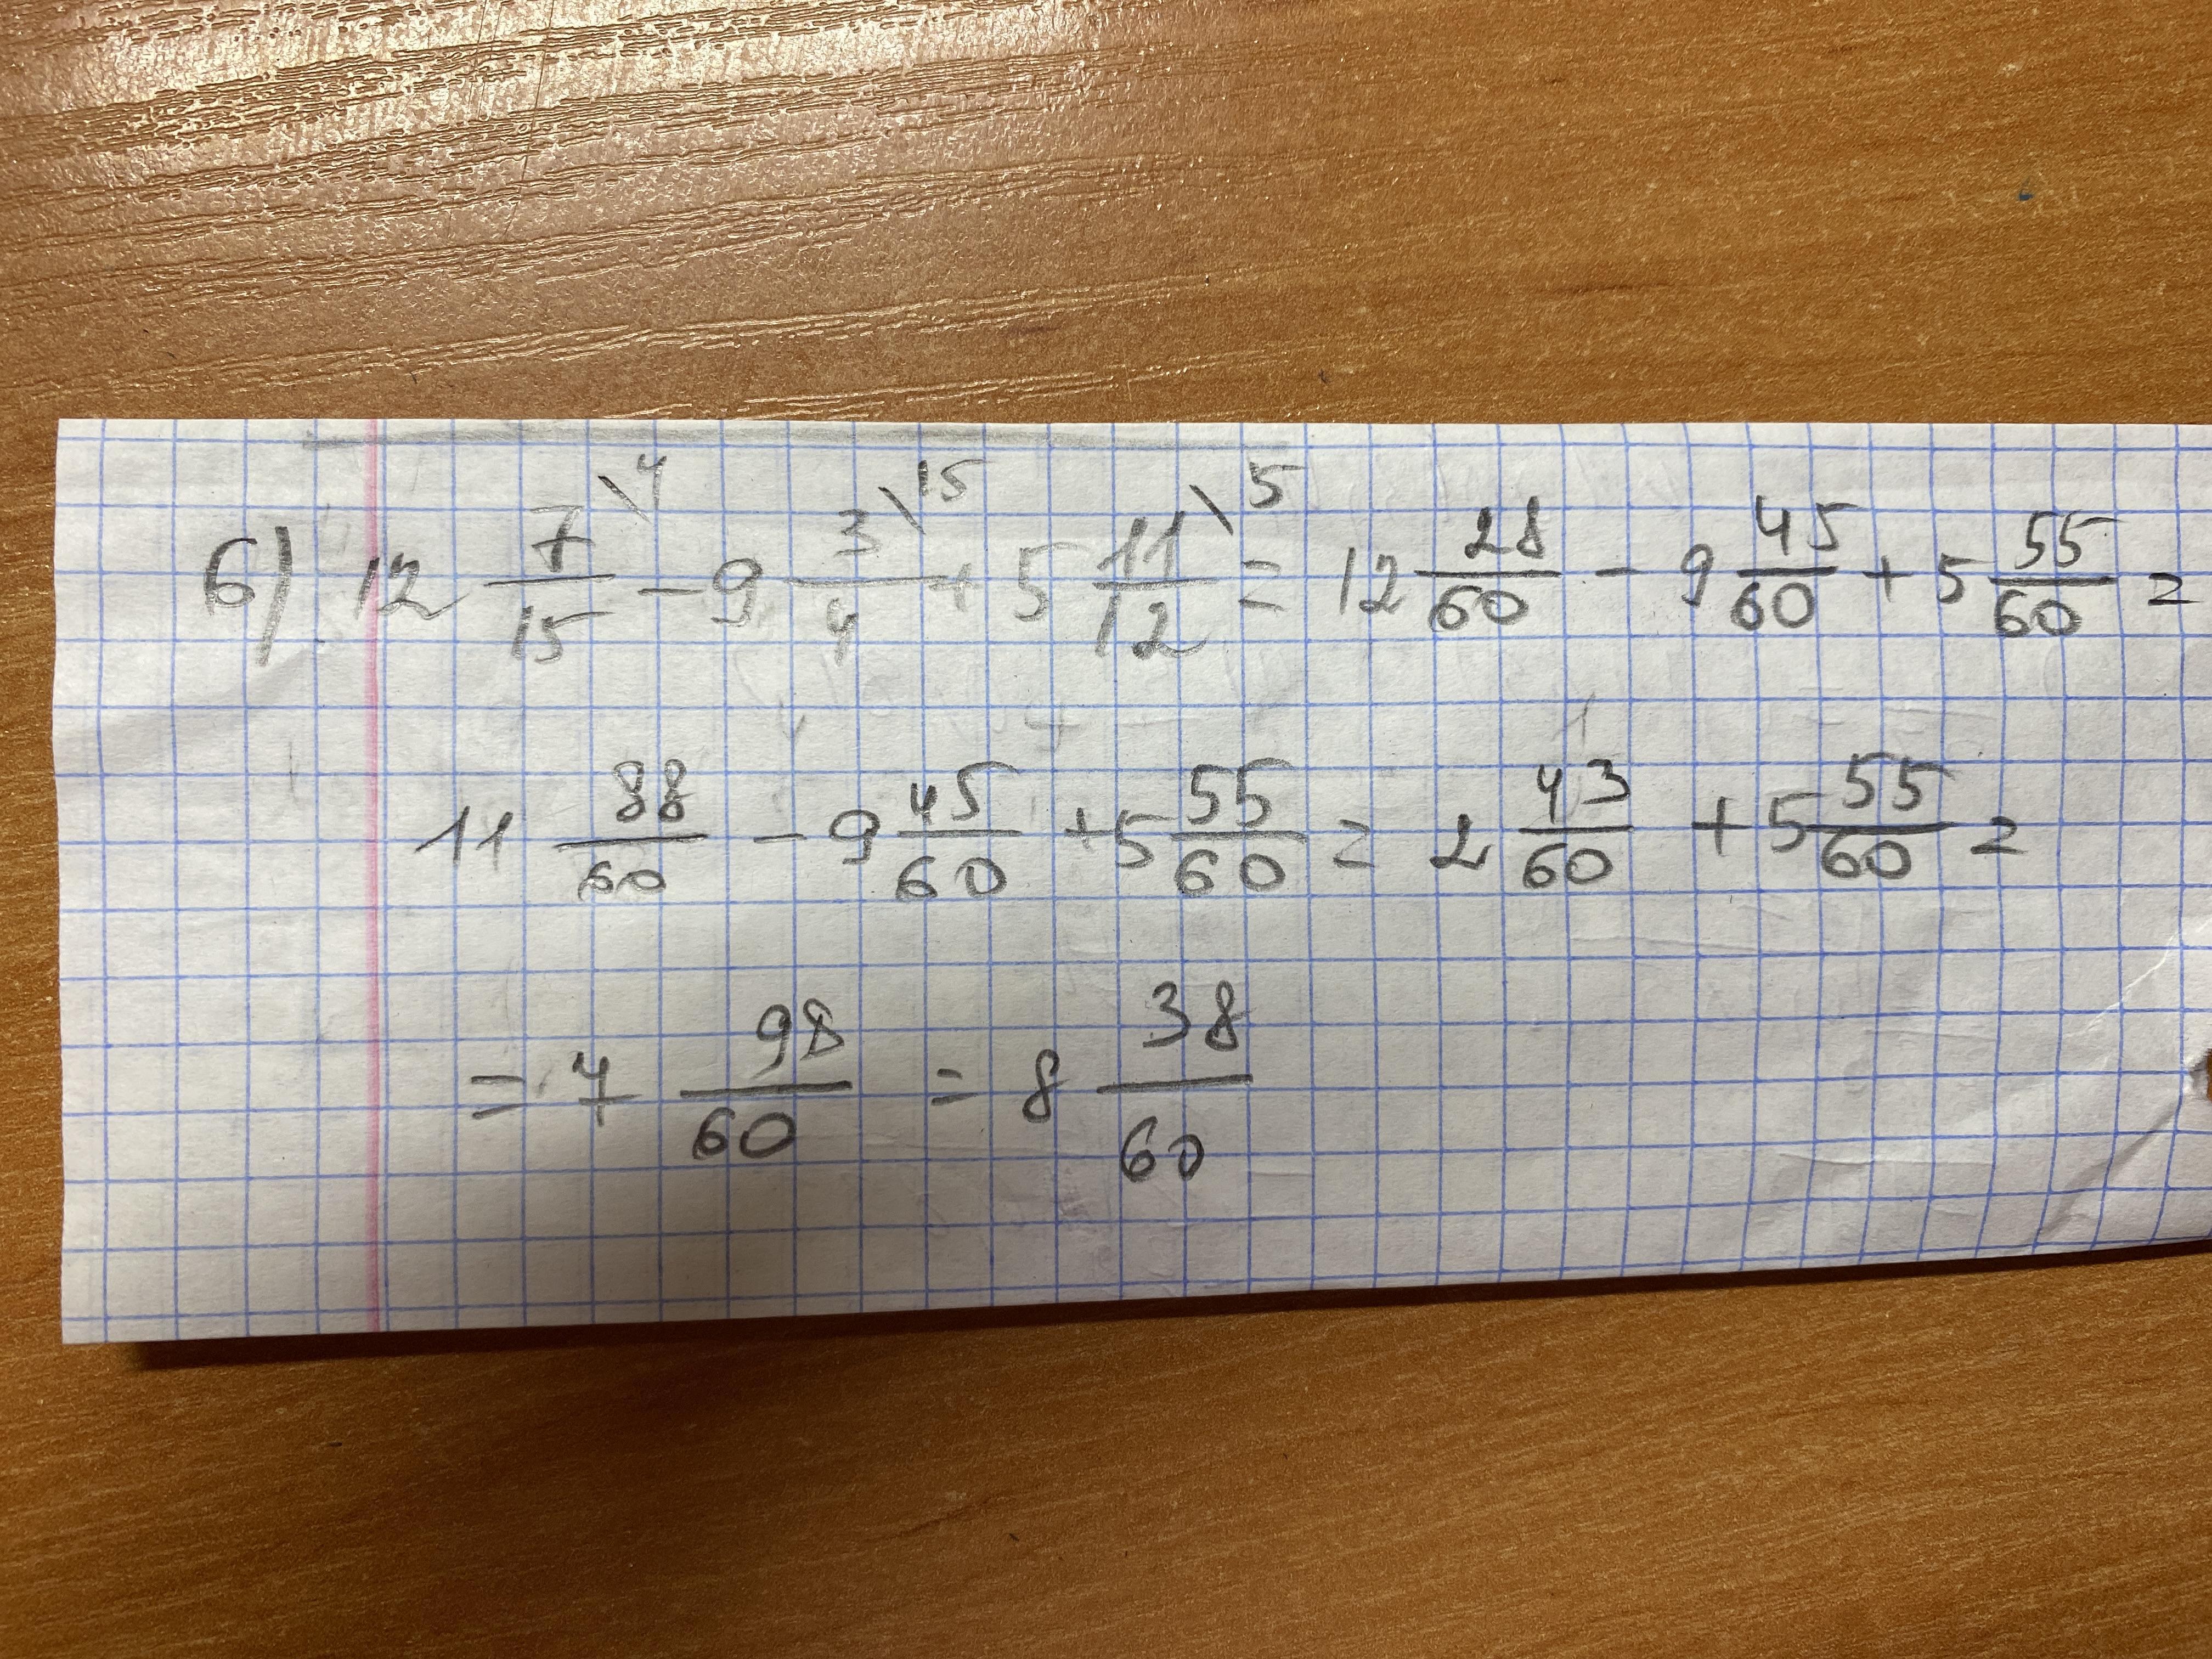 б) 12 7/15 \4 - 9 3/4 \15 + 5 11/12 \5 = 12 28/60 - 9 45/60 + 5 55/60 =
11 88/60 - 9 45/60 + 5 55/60 = 2 43/60 + 5 55/60 =
= 7 98/60 = 8 38/60